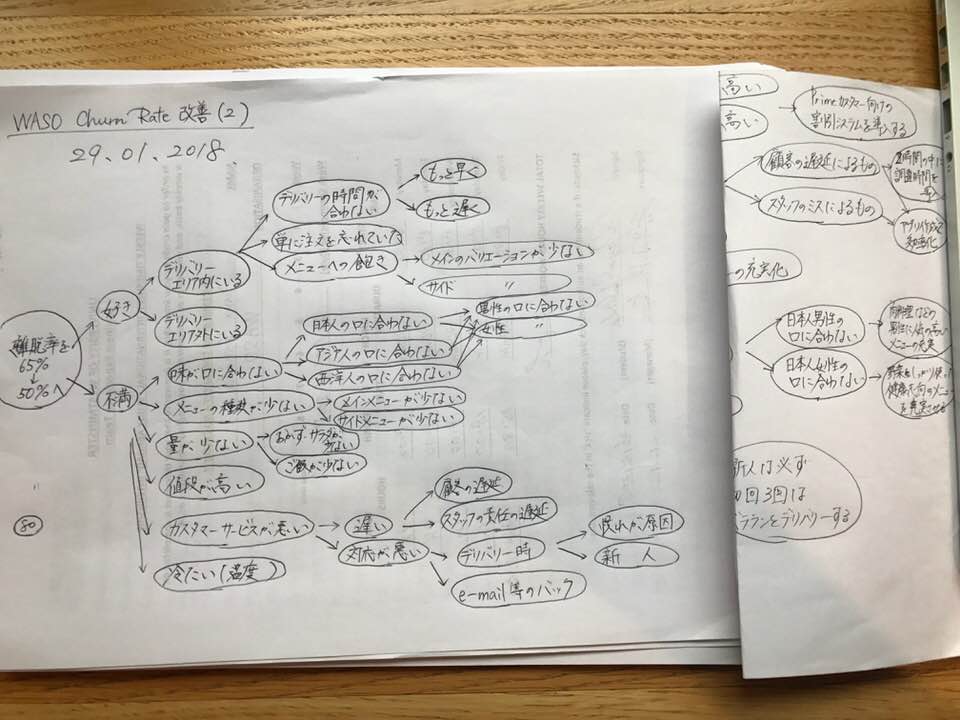 WASO Churn Rate 改善(2)
29.01.2018
離脱率を
65%
↓
50%へ
好き
デリバリー
エリア内にいる
デリバリーの時間が
合わない
もっと早く
もっと遅く
単に注文を忘れていた
メニューへの飽き
メインのバリエーションが少ない
サイド 〃
デリバリー
エリア外にいる
不満
味が口に合わない
日本人の口に合わない
アジア人の口に合わない
西洋人の口に合わない
男性の口に合わない
女性 〃
メニューの種類が少ない
メインメニューが少ない
サイドメニューが少ない
量が少ない
おかず、サラダが
少ない
ご飯が少ない
値段が高い
カスタマーサービスが悪い
遅い
顧客の遅延
スタッフの責任の遅延
対応が悪い
デリバリー時
慣れが原因
新人
e-mail等のバック
冷たい(温度)
80
高い
高い
Primeカスタマー向けの
割引システムを導入する
顧客の遅延によるもの
2時間の中に
調整時間を
スタッフのミスによるもの
アプリ作成で
効率化
の充実化
日本人男性の
口に合わない
肉料理などの
男性に人気の高い
メニューの充実
日本人女性の
口に合わない
野菜をしっかり使った
健康志向のメニュー
を充実させる
新人は必ず
初回3回は
ベテランとデリバリーする